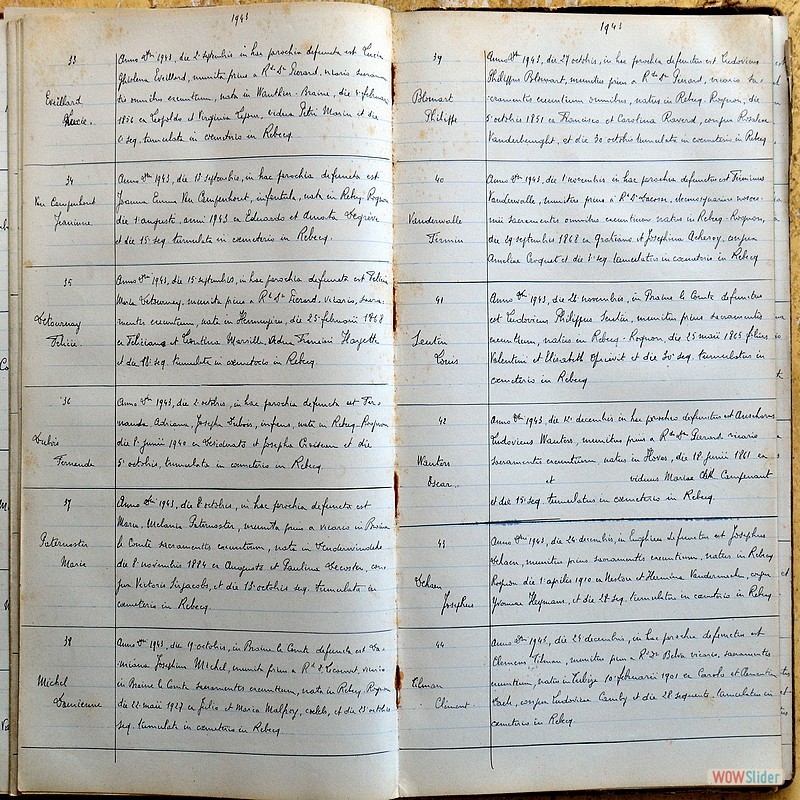 1943
33
Eveillard
Lucie.
Anno Dni 1943, die 2 septembris in hac parochia defuncta est Lucia
Ghislena Eveillard, munita prius a Rdo Dno Gerard, vicario sacramen
tis omnibus exeuntium, nata in Wauthier-Braine, die 4 februarii
1856 ex Leopoldo et Virginia Lefevre, vidua Petri Marin et die
6 seq. tumulata in cœmeterio in Rebecq.
34
Van Campenhout
Jeannine
Anno Dni 1943, die 13 septembris, in hac parochia defuncta est
Joanna Emma Van Campenhout, infantula, nata in Rebecq-Rognon
die 1 augusti, anni 1943 ex Eduardo et Degrève
et die 15 seq. tumulata in cœmeterio in Rebecq.
35
Detournay
Félicie.
Anno Dni 1943, die 15 septembris, in hac parochia defuncta est Felicia
Maria Detournay, munita prius a Rdo Dno Gerard, vicario, sacra
mentis exeuntium, nata in Hennuyères, die 25 februarii 1868
ex Feliciano et Leontina vidua Francisci
et die 18 seq. tumulata in cœmeterio in Rebecq.
36
Dubois
Fernande
Anno Dni 1943, die 2 octobris, in hac parochia defuncta est Fer
nanda Adriana, Josepha Dubois, infans, nata in Rebecq-Rognon
die 1 junii 1940 ex Desiderato et Josepha et die
5 octobris, tumulata in cœmeterio in Rebecq.
37
Paternoster
Marie
Anno Dni 1943, die 8 octobris, in hac parochia defuncta est
Maria, Melania Paternoster, munita prius a vicario in Braine
le Comte sacramentis exeuntium, nata in
die 8 novembris 1884 ex Augusto et Paulina con
jux Victoris et die 13 octobris seq. tumulata in
cœmeterio in Rebecq.
38
Michel
Damienne
Anno Dni 1943, die 19 octobris, in Braine le Comte defuncta est Da
miana Josephina Michel, munita prius a Rdo D. Lecourt, vicario
in Braine le Comte sacramentis exeuntium, nata in Rebecq-Rognon
die 22 maii 1927 ex Julio et Maria Malfroy, cœlebs, et die 23 octobris
seq. tumulata in cœmeterio in Rebecq.
1943
39
Blomart
Philippe
Anno Dni 1943, die 27 octobris, in hac parochia defunctus est Ludovicus
Philippus Blomart, munitus prius a Rdo Dno Gerard, vicario sa
cramentis exeuntium omnibus, natus in Rebecq-Rognon, die
5 octobris 1851 ex Francisco et Carolina Ravard, conjux Rosaliæ
Vanderbeught, et die 30 octobris tumulatus in cœmeterio in Rebecq
40
Vanderwalle
Firmin
Anno Dni 1943, die 1 novembris in hac parochia defunctus est Firminus
Vanderwalle, munitus prius a Rdo Do Lacosse, nosoco
mii sacramentis omnibus exeuntium natus in Rebecq-Rognon,
die 29 septembris 1868 ex Gratiano et Josephina Acheroy, conjux
Ameliæ Croquet et die 3 seq. tumulatus in cœmeterio in Rebecq
41
Sentin
Louis
Anno Dni 1943, die 26 novembris, in Braine le Comte defunctus
est Ludovicus Philippus Sentin, munitus prius sacramentis
exeuntium, natus in Rebecq-Rognon, die 25 maii 1865 filius
Valentini et Elisabeth et die 30 seq. tumulatus in
cœmeterio in Rebecq
42
Wauters
Oscar.
Anno Dni 1943, die 12 decembris in hac parochia defunctus est
Ludovicus Wauters, munitus prius a Rdo Dno Gerard vicario
sacramentis exeuntium, natus in Hoves, die 18 junii 1861 ex
et viduus Mariæ Campenant
et die 15 seq. tumulatus in cœmeterio in Rebecq.
43
Dehaen
Josephus
Anno Dni 1943, die 24 decembris, in Enghien defunctus est Josephus
Dehaen, munitus prius sacramentis exeuntium, natus in Rebecq
Rognon die 1 aprilis 1910 ex Nestore et Hermina conjux
Yvonnæ Heymans, et die 28 seq. tumulatus in cœmeterio in Rebecq
44
Tilman
Clément.
Anno Dni 1943, die 25 decembris, in hac parochia defunctus est
Clemens Tilman, munitus prius a Rdo Do Belva vicario, sacramentis
exeuntium, natus in Tubize 10 februarii 1901 ex Carolo et Clementina
conjux Ludovicæ et die 28 sequentis, tumulatus in
cœmeterio in Rebecq.
WOWSlider